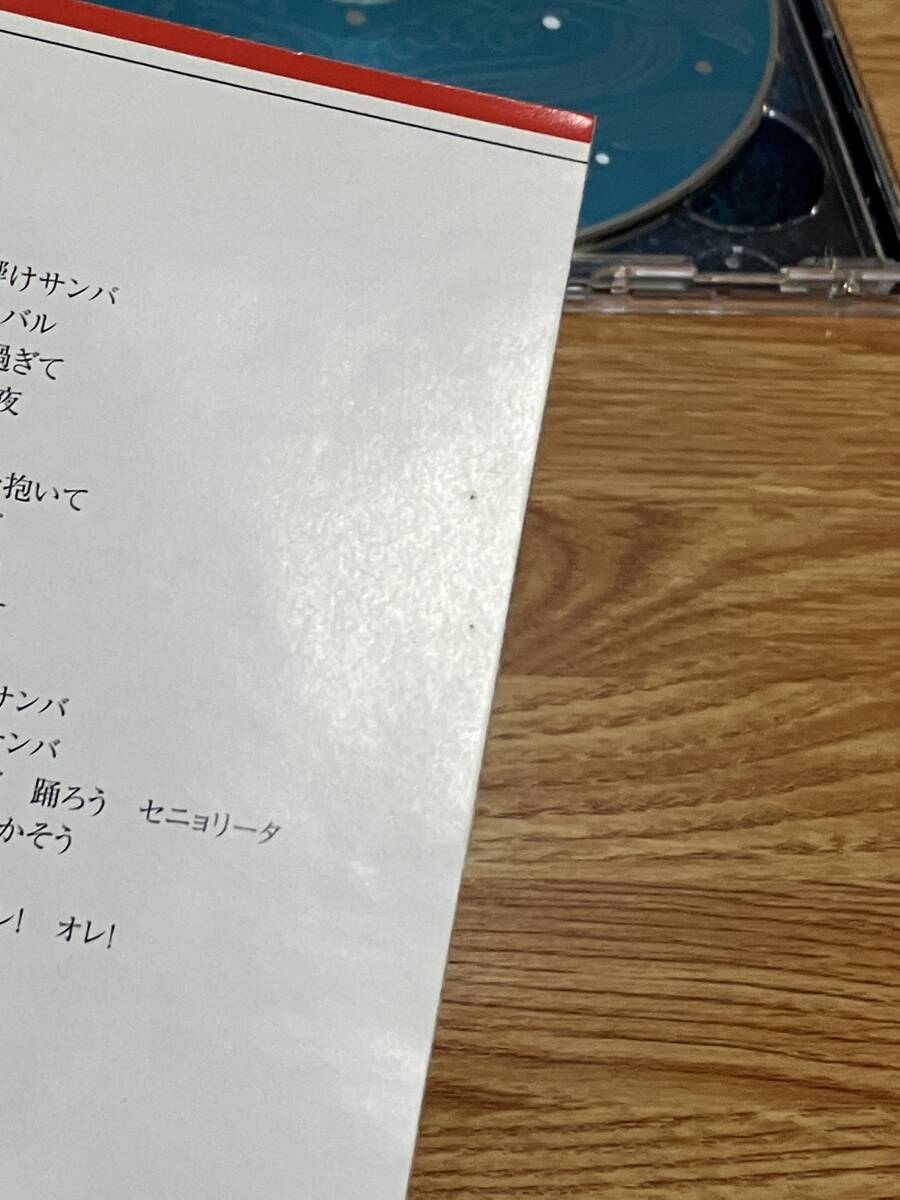 けサンバ
バル
過ぎて
夜
抱いて
サンバ
ンバ
踊ろう　セニョリータ
かそう
レ！　オレ！